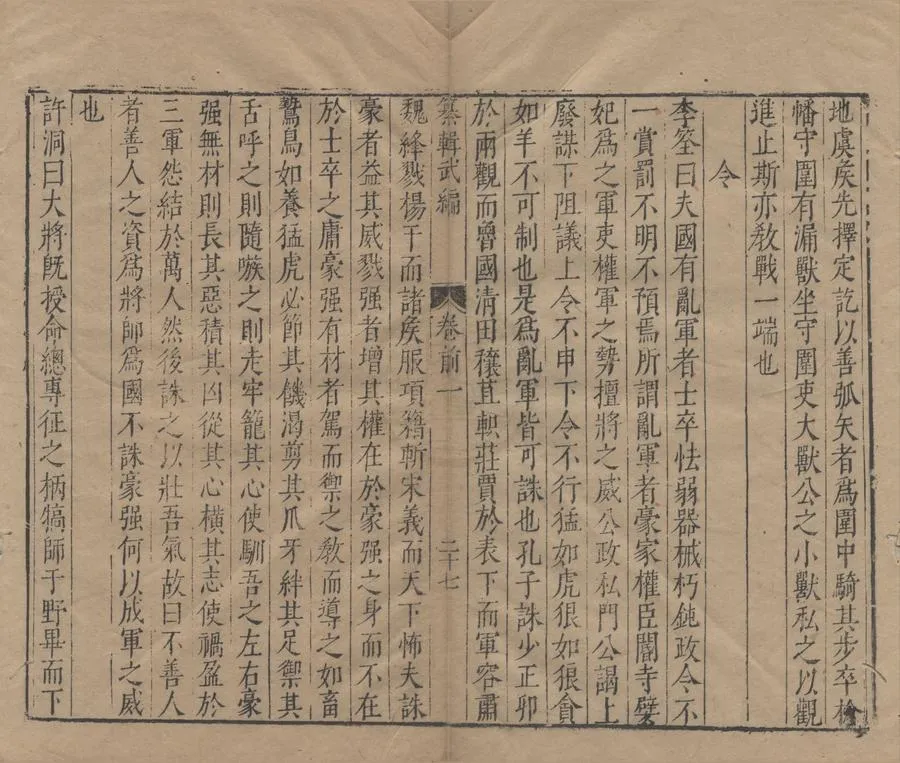 地虞矦先擇定訖以善弧矢者爲圍中騎其步卒槍
幡守圍有漏獸坐守圍吏大獸公之小獸私之以觀
進止斯亦敎戰一端也
令
李筌曰夫國有亂軍者士卒怯弱器械朽鈍政令不
一賞罰不明不預焉所謂亂軍者豪家權臣閽寺嬖
妃爲之軍吏權軍之勢擅將之威公政私門公謁上
廢謀下阻議上令不申下令不行猛如虎狠如狼貪
如羊不可制也是爲亂軍皆可誅也孔子誅少正卯
於兩觀而魯國清田穰苴斬莊賈於表下而軍容肅
纂輯武編
卷前一
二十七
魏絳戮楊干而諸矦服項籍斬宋義而天下怖夫誅
豪者益其威戮强者增其權在於豪强之身而不在
於士卒之庸豪强有材者駕而禦之敎而導之如畜
鷙鳥如養猛虎必節其饑渴剪其爪牙絆其足禦其
舌呼之則隨嗾之則走牢籠其心使馴吾之左右豪
强無材則長其惡積其凶從其心橫其志使禍盈於
三軍怨結於萬人然後誅之以壯吾氣故曰不善人
者善人之資爲將師爲國不誅豪强何以成軍之威
也
許洞曰大將旣授命總專征之柄犒師于野畢而下